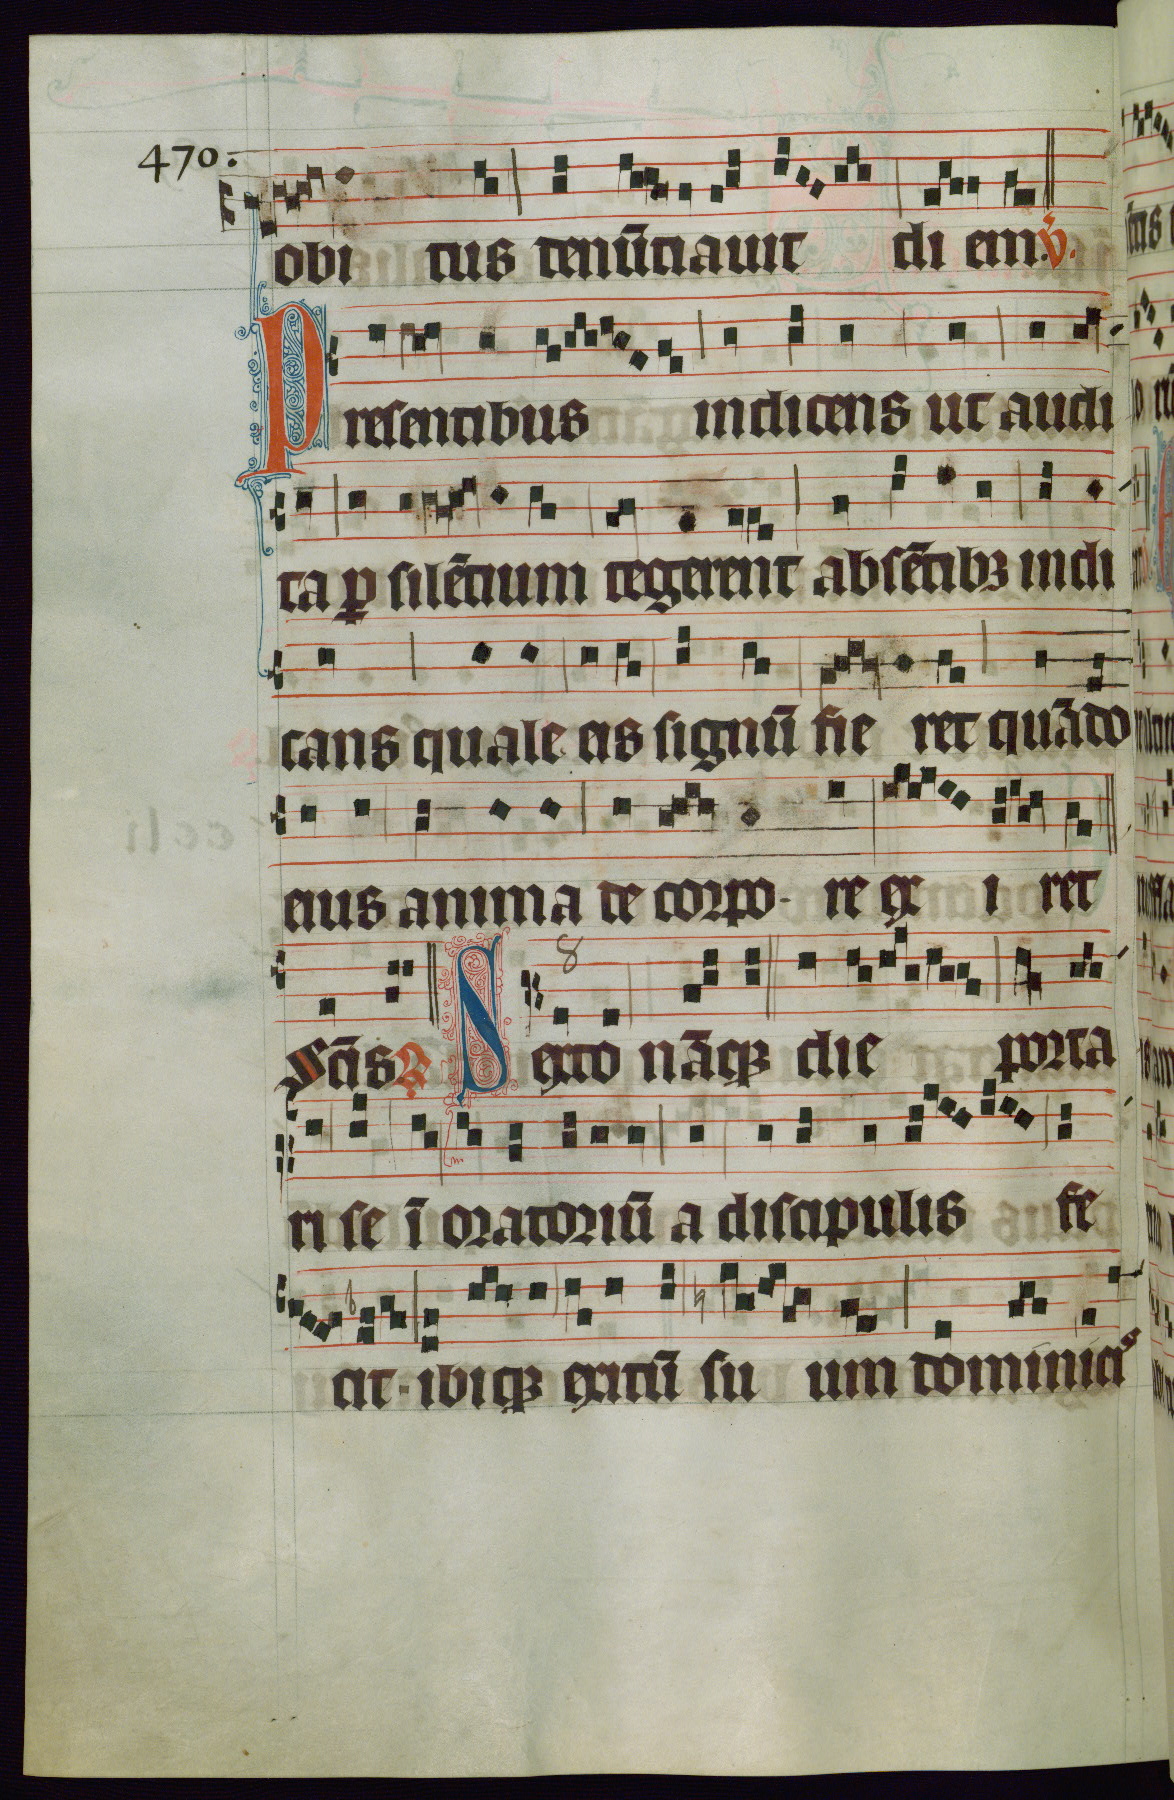 470.
obi tus denūtiauit di em. v̄.
Presentibus indicens ut audi
ta ꝑ silētium tegerent absētibꝫ indi
cans quale eis signū fie ret quādo
eius anima de corpo- re ex i ret
Scīs ℟ 8 Sexto nāqꝫ die porta
ri se ī oratoriū a discipulis fe
cit · ibiqꝫ exitū su um dominici